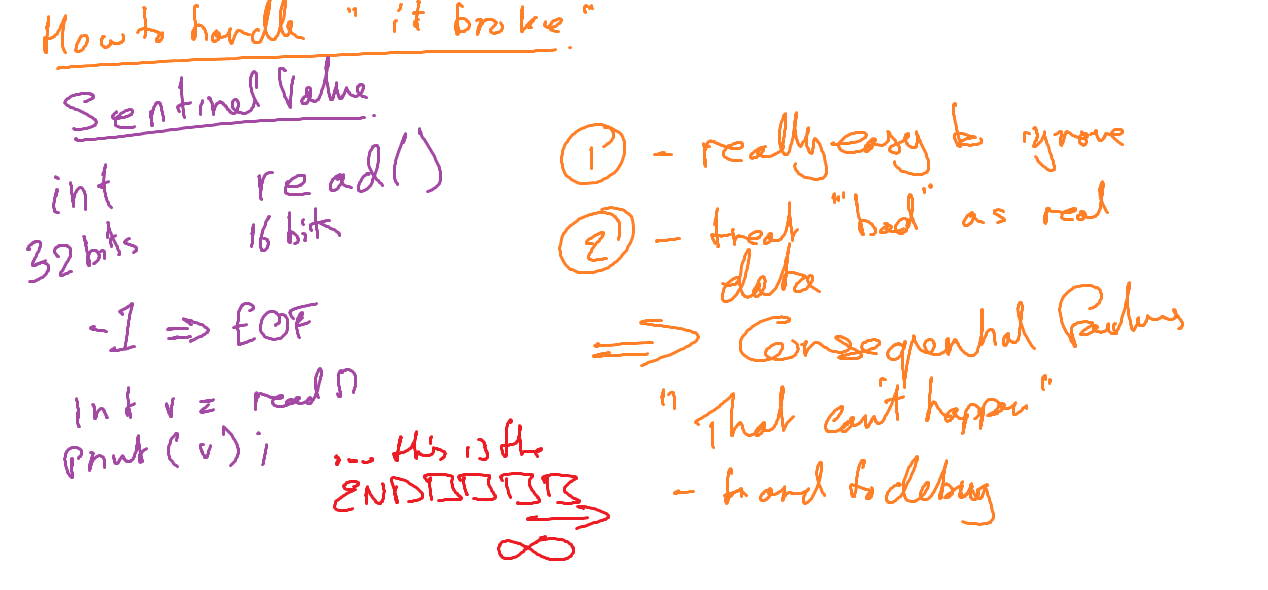 How to handle "it broke"
Sentinel Value
int read()
32 bits 16 bits
-1 ⇒ EOF
Int v = read()
print(v);
.... this is the
END
∞
① - really easy to ignore
② - treat "bad" as real
data
⇒ Consequential Failures
"That can't happen"
- hard to debug